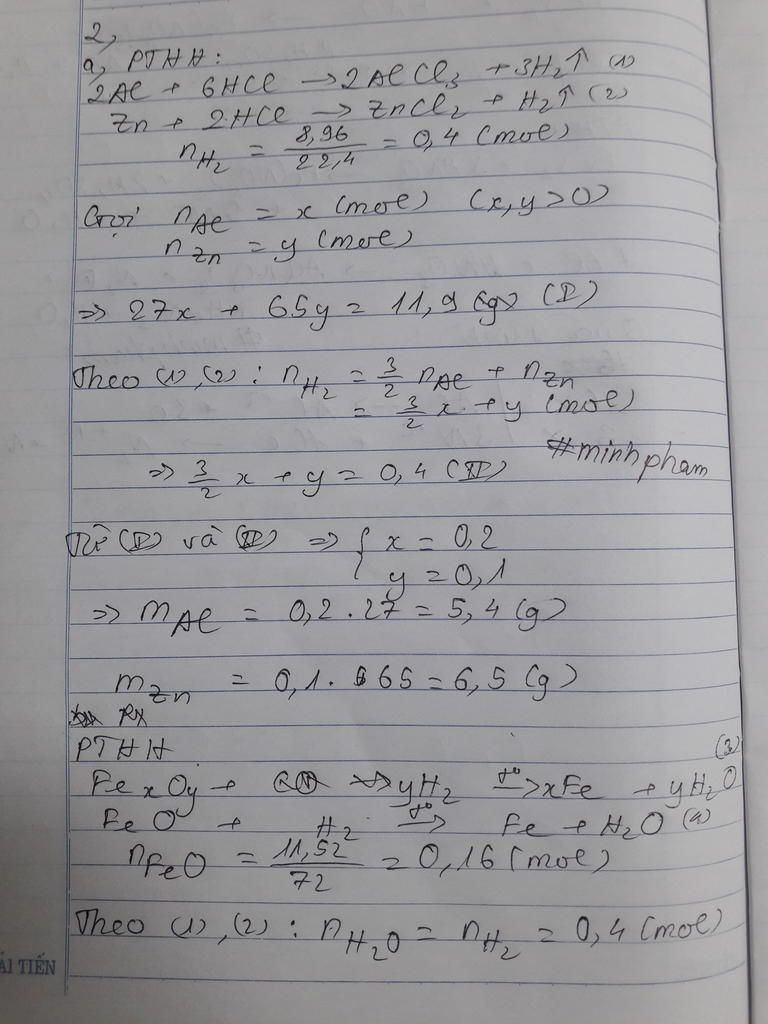 2,
a, PTHH:
2Al + 6HCl → 2AlCl3 + 3H2↑ (1)
Zn + 2HCl → ZnCl2 + H2↑ (2)
nH2 = 8,96/22,4 = 0,4 (mol)
Gọi nAl = x (mol) (x,y>0)
nZn = y (mol)
=> 27x + 65y = 11,9 (g) (I)
Theo (1),(2): nH2 = 3/2 nAl + nZn
= 3/2 x + y (mol)
=> 3/2 x + y = 0,4 (II)
#minhpham
Từ (I) và (II) => { x = 0,2
y = 0,1
=> mAl = 0,2 . 27 = 5,4 (g)
mZn = 0,1 . 65 = 6,5 (g)
PTHH
FexOy + yH2 -t°-> xFe + yH2O (3)
FeO + H2 -t°-> Fe + H2O (4)
nFeO = 11,52/72 = 0,16 (mol)
Theo (1),(2): nH2O = nH2 = 0,4 (mol)
ẢI TIẾN